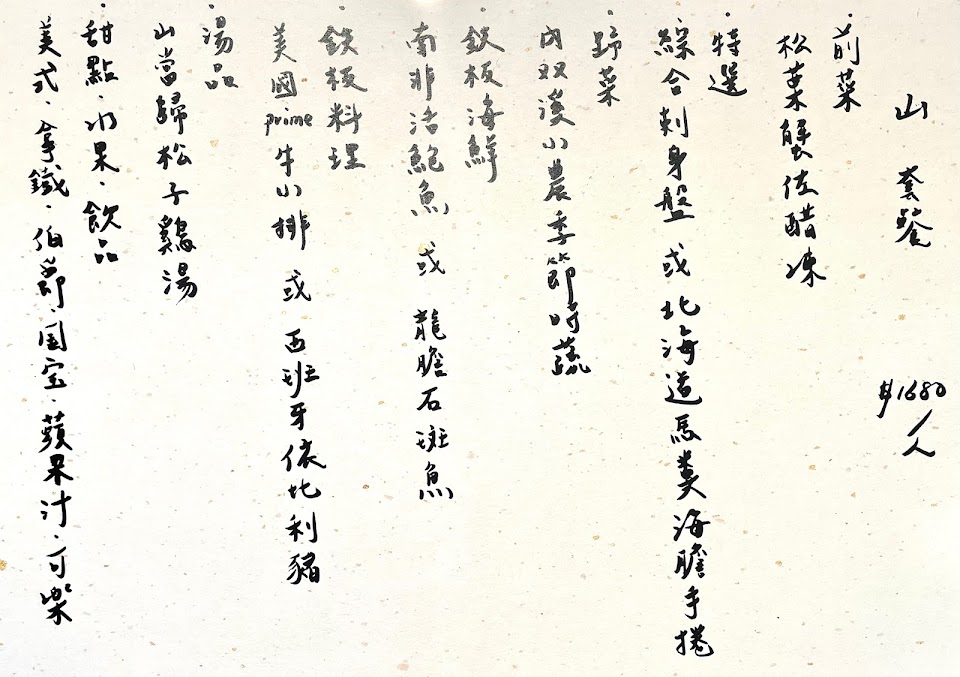 山 套餐 $1680/人
·前菜
松葉蟹佐醋凍
·特選
綜合刺身盤 或 北海道馬糞海膽手捲
·野菜
內双溪小農季節時蔬
·鉄板海鮮
南非活鮑魚 或 龍膽石斑魚
·鉄板料理
美國prime牛小排 或 西班牙依比利豬
·湯品
山當歸松子雞湯
·甜點·水果·飲品
美式·拿鐵·伯爵·国宝·蘋果汁·可樂